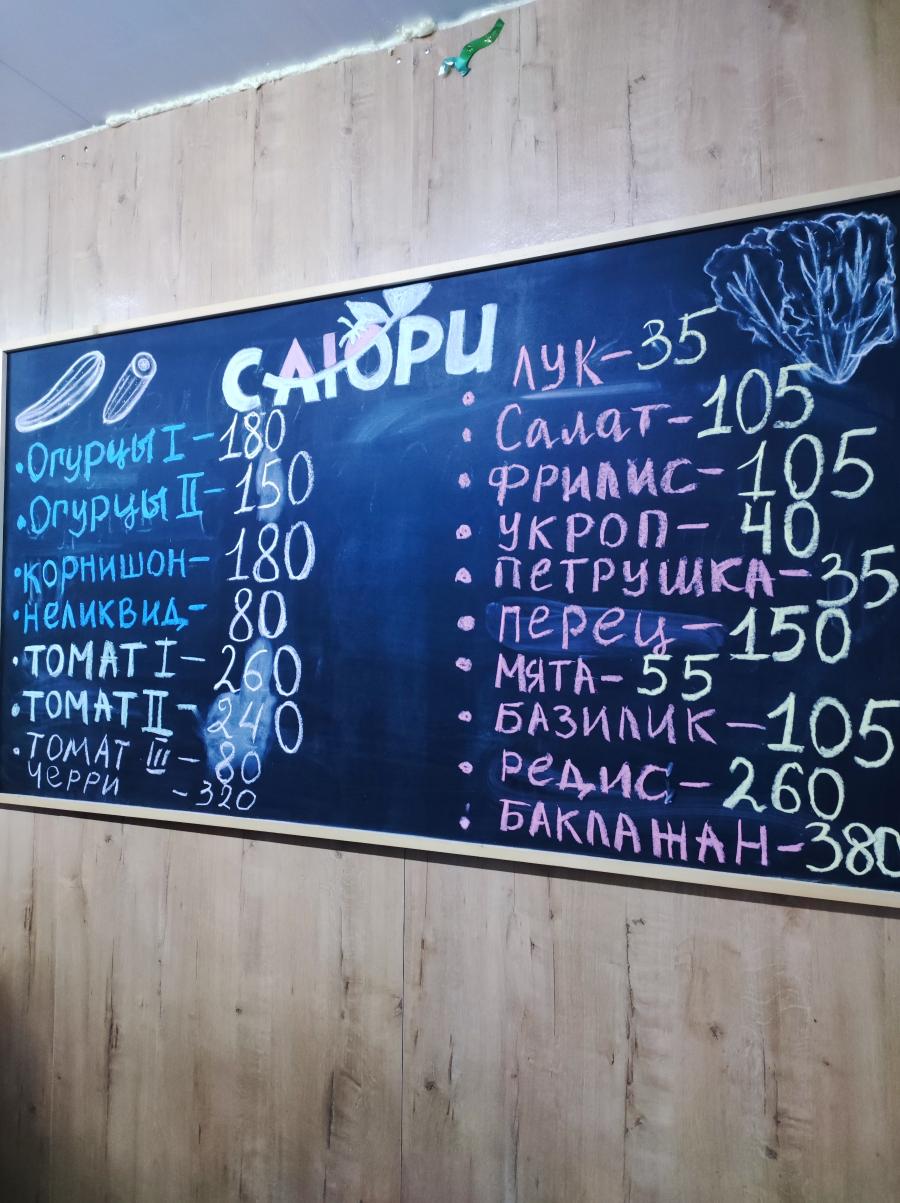 САЮРИ
• Огурцы I - 180
• Огурцы II - 150
• корнишон - 180
• неликвид - 80
• ТОМАТ I - 260
• ТОМАТ II - 240
• ТОМАТ III - 80
ЧЕРРИ - 320
• ЛУК - 35
• Салат - 105
• ФРИЛИС - 105
• УКРОП - 40
• ПЕТРУШКА - 35
• перец - 150
• МЯТА - 55
• БАЗИЛИК - 105
• РЕДИС - 260
• БАКЛАЖАН - 380